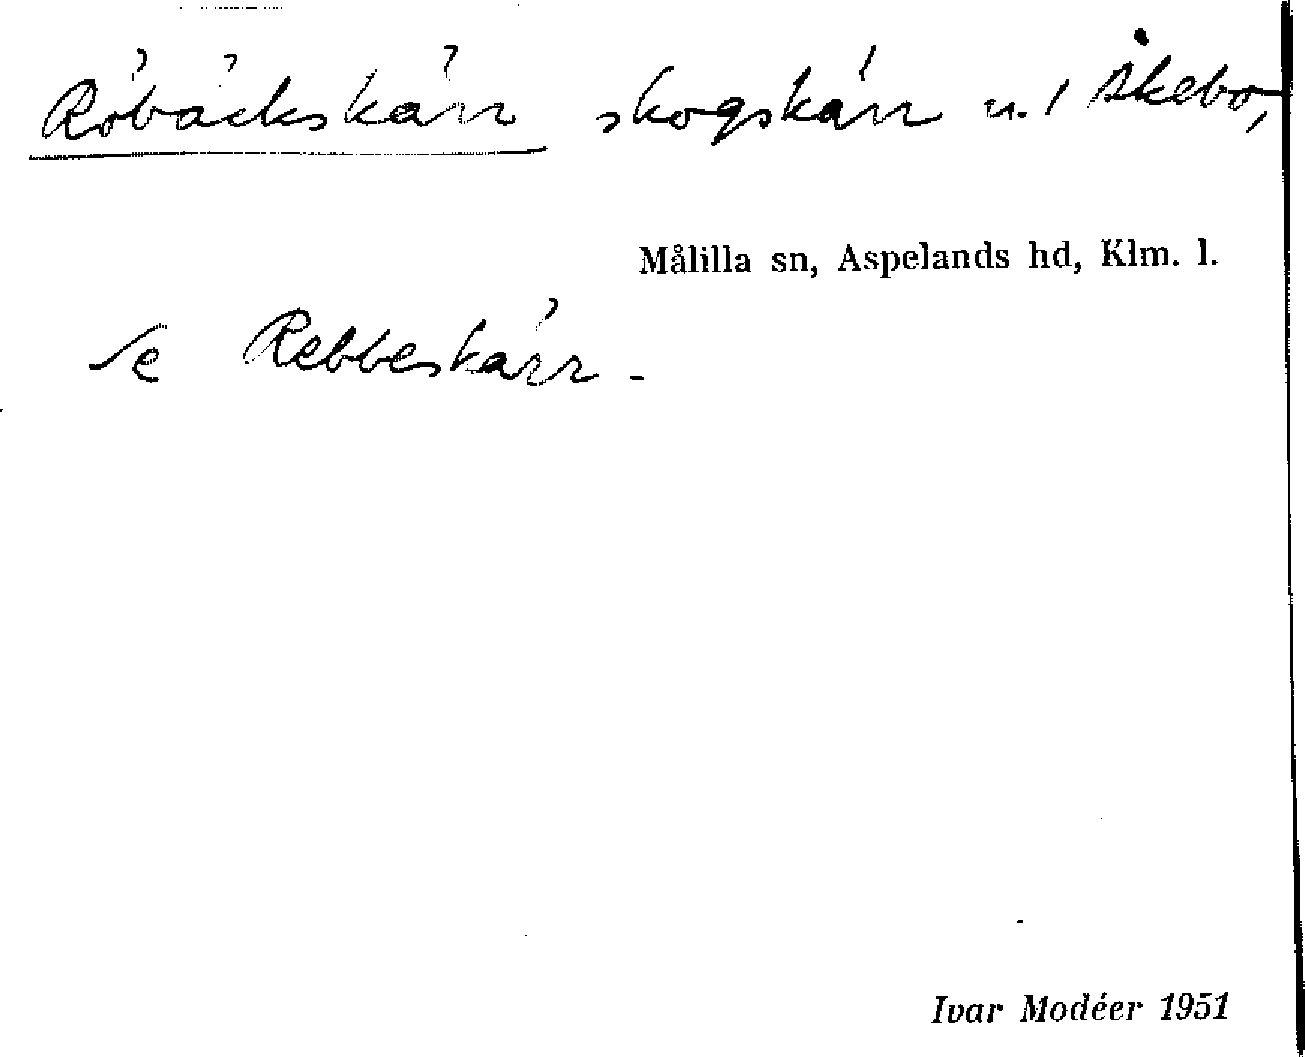 Röbäckskärr skogskärr u. / Åkebo,
Målilla sn, Aspelands hd, Klm. l.
se Rebbeskärr.
Ivar Modéer 1951